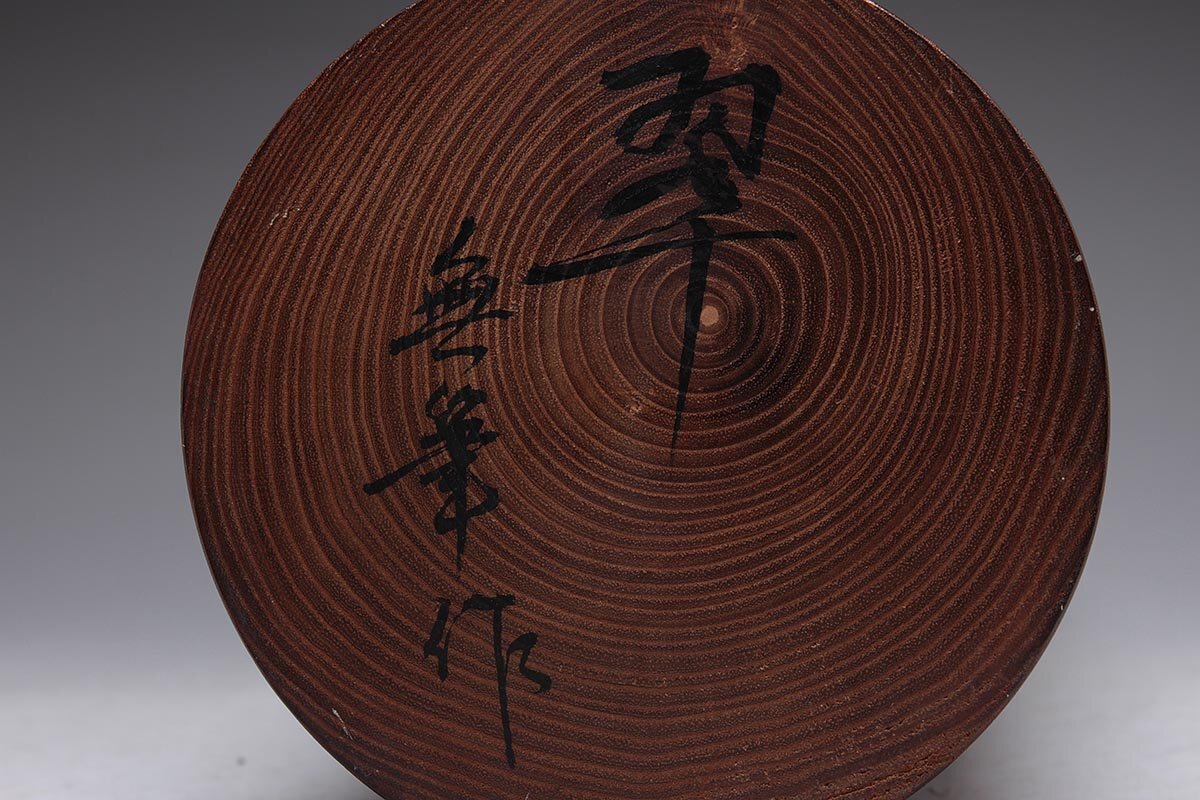 翠
無筆作